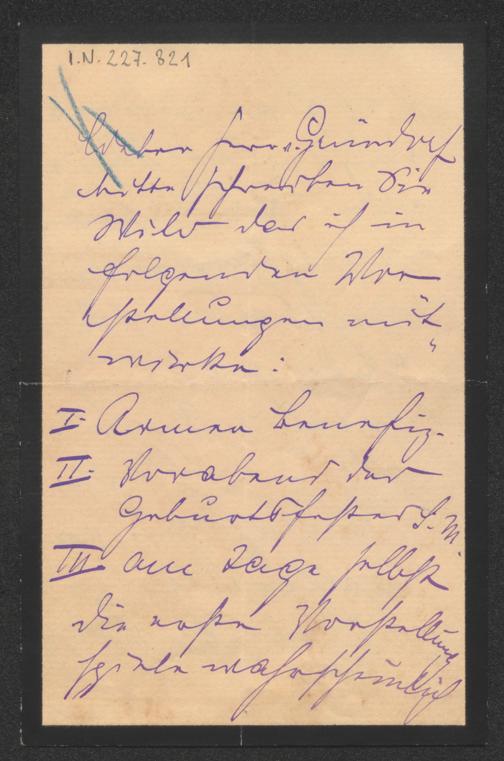 I.N. 227.821
Lieber Herr v. Gründorf
bitte schreiben Sie
Wild das ich in
folgenden Vor
stellungen mit"
wirke:
I. Armen Benefiz.
II. Vorabend des
Geburtsfestes S. M.
III am Tage selbst
die erste Vorstellung
spiele wahrscheinlich